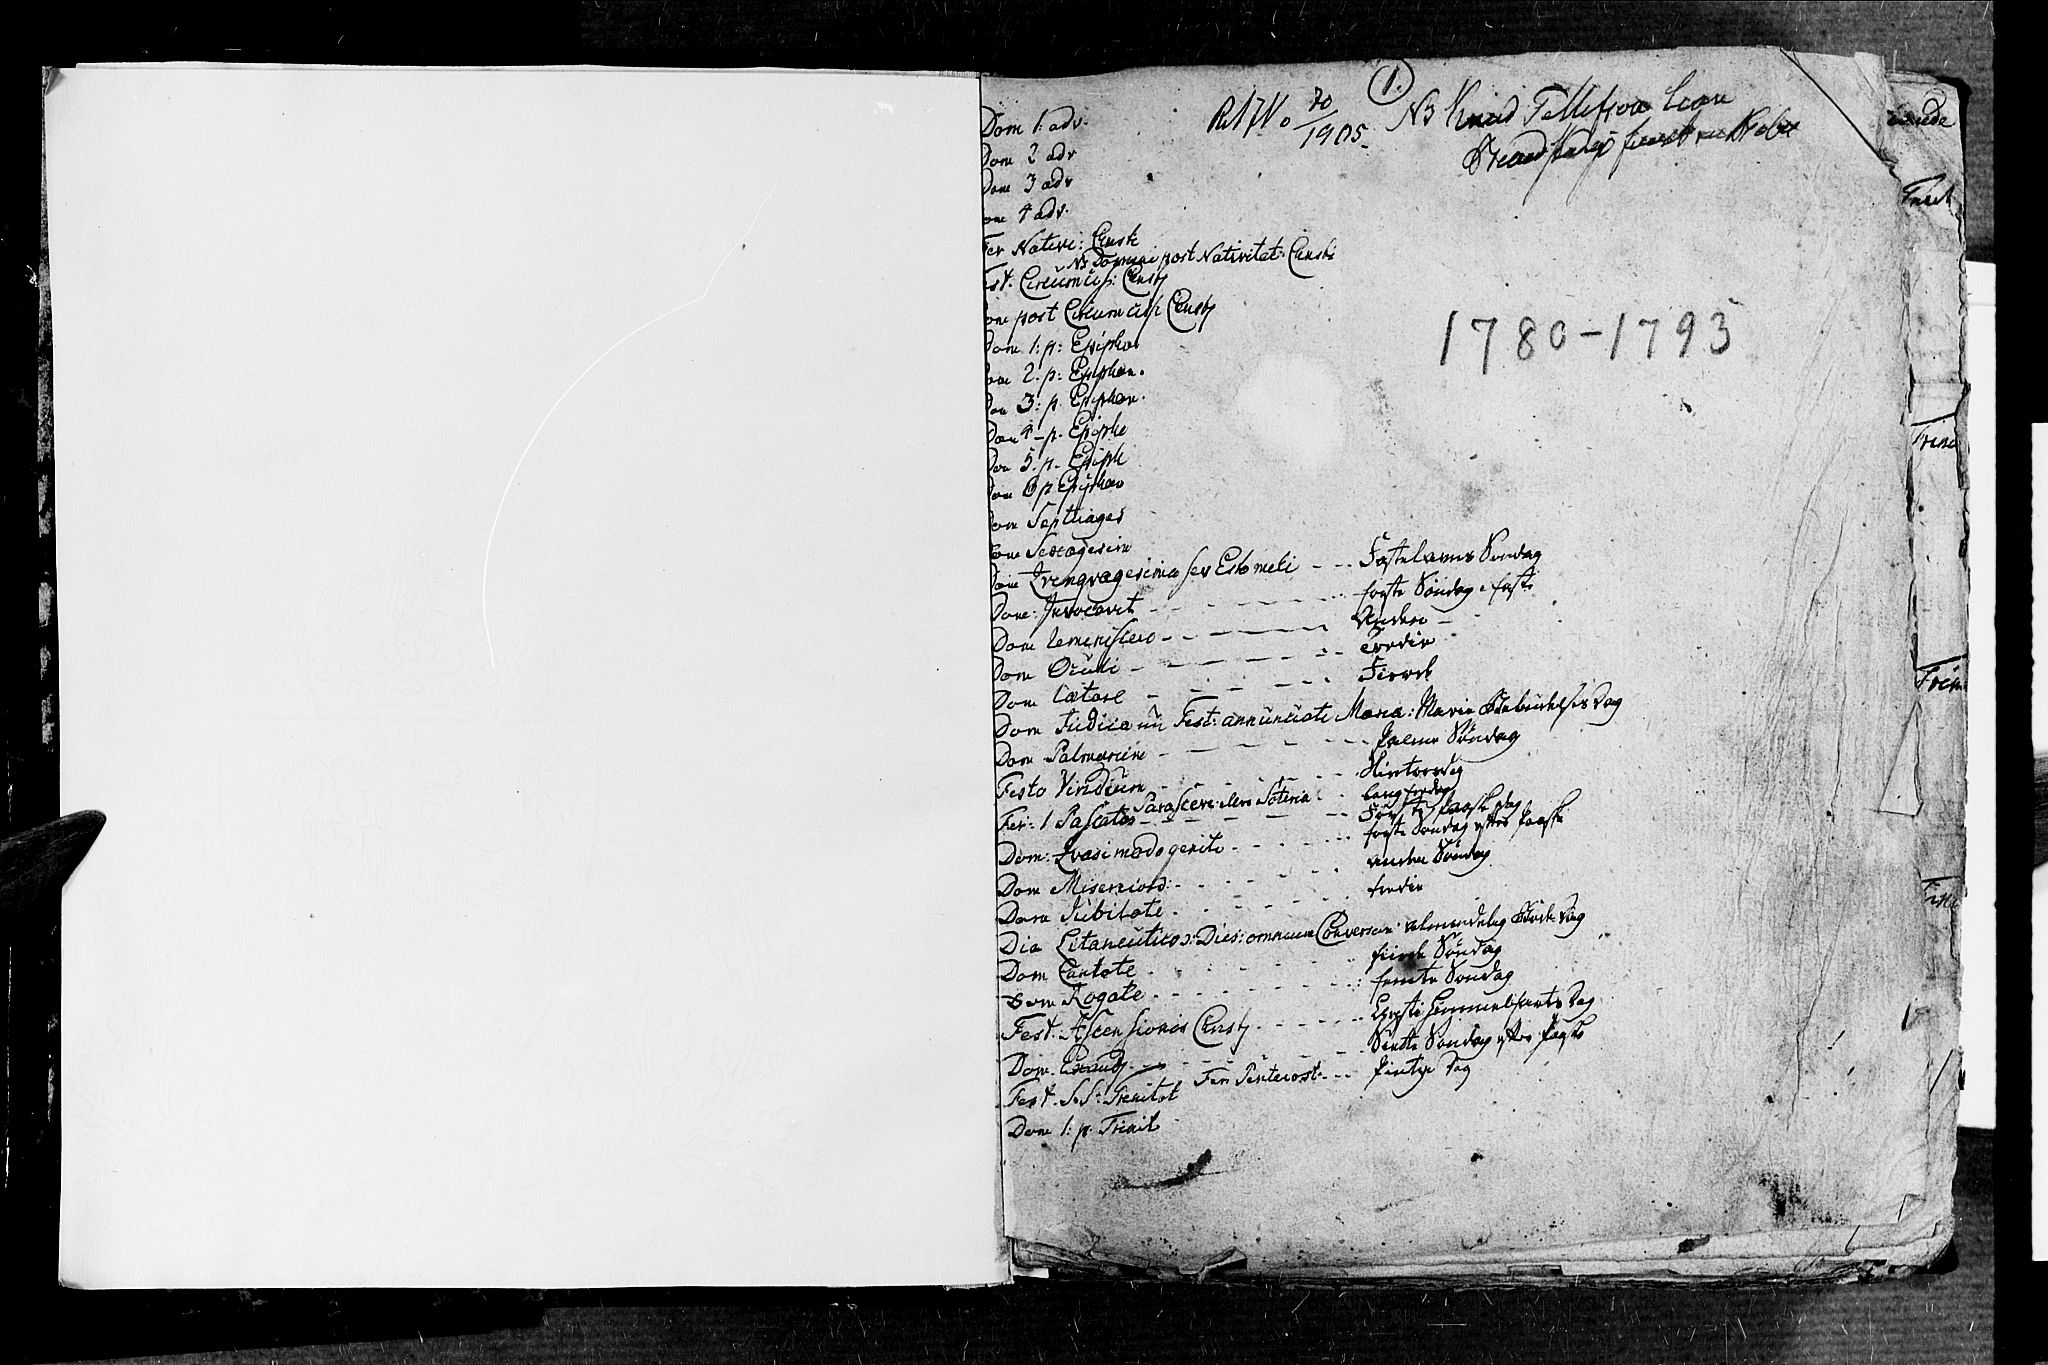 1.
RA J No 70/1905.
NB Knud Tellefson
1780-1793
Dom 1: adv.
Dom 2 adv
Dom 3 adv
om 4 adv.
Fer Nativi: Christi
NB Domini post Nativitat: Christi
st. Circumcis: Christi
om post Circumcis Christi
Dom 1: p: Epipha
om 2. p: Epiphan.
Dom 3: p. Epiphan.
Dom 4 - p. Epiph
Dom 5. p. Epiph
Dom 6 p Epiphan
Dom Septuages
Dom Sexagesim
Dom Qvinqvagesima sev Estomihi - - Fastelavns Søndag
Dom: Invocavit - - - første Søndag i faste
Dom Reminiscere - - - Anden -
Dom Oculi - - - Tredie
Dom Lætare - - - Fierde
Dom Judica Fest: annunciati Maria: Mariæ Bebudelses Dag
Dom Palmarum - - - Palme Søndag
Festo Viridium - - - Skiertorsdag
Parasceve Langfredag
Fer: 1 Pascatos - - - Første Paaske Dag
Dom: Qvasimodogeniti - - - første Søndag efter Paaske
Dom Misericord: - - - anden Søndag
Dom Jubilate - - - tredie
Dia Litaneutico: Dies: omnium Conversar: almindelig Bede Dag
Dom Cantate - - - fierde Søndag
Dom Rogate - - - femte Søndag
Fest: Ascensionis Christi - - - Christi Himmelfarts Dag
Dom. Exaudi - - - Siette Søndag efter Paaske
Fer: Pentecost - - - Pintse Dag
Fest. S.S: Trinitat
Dom 1: p: Trinit
Trinit